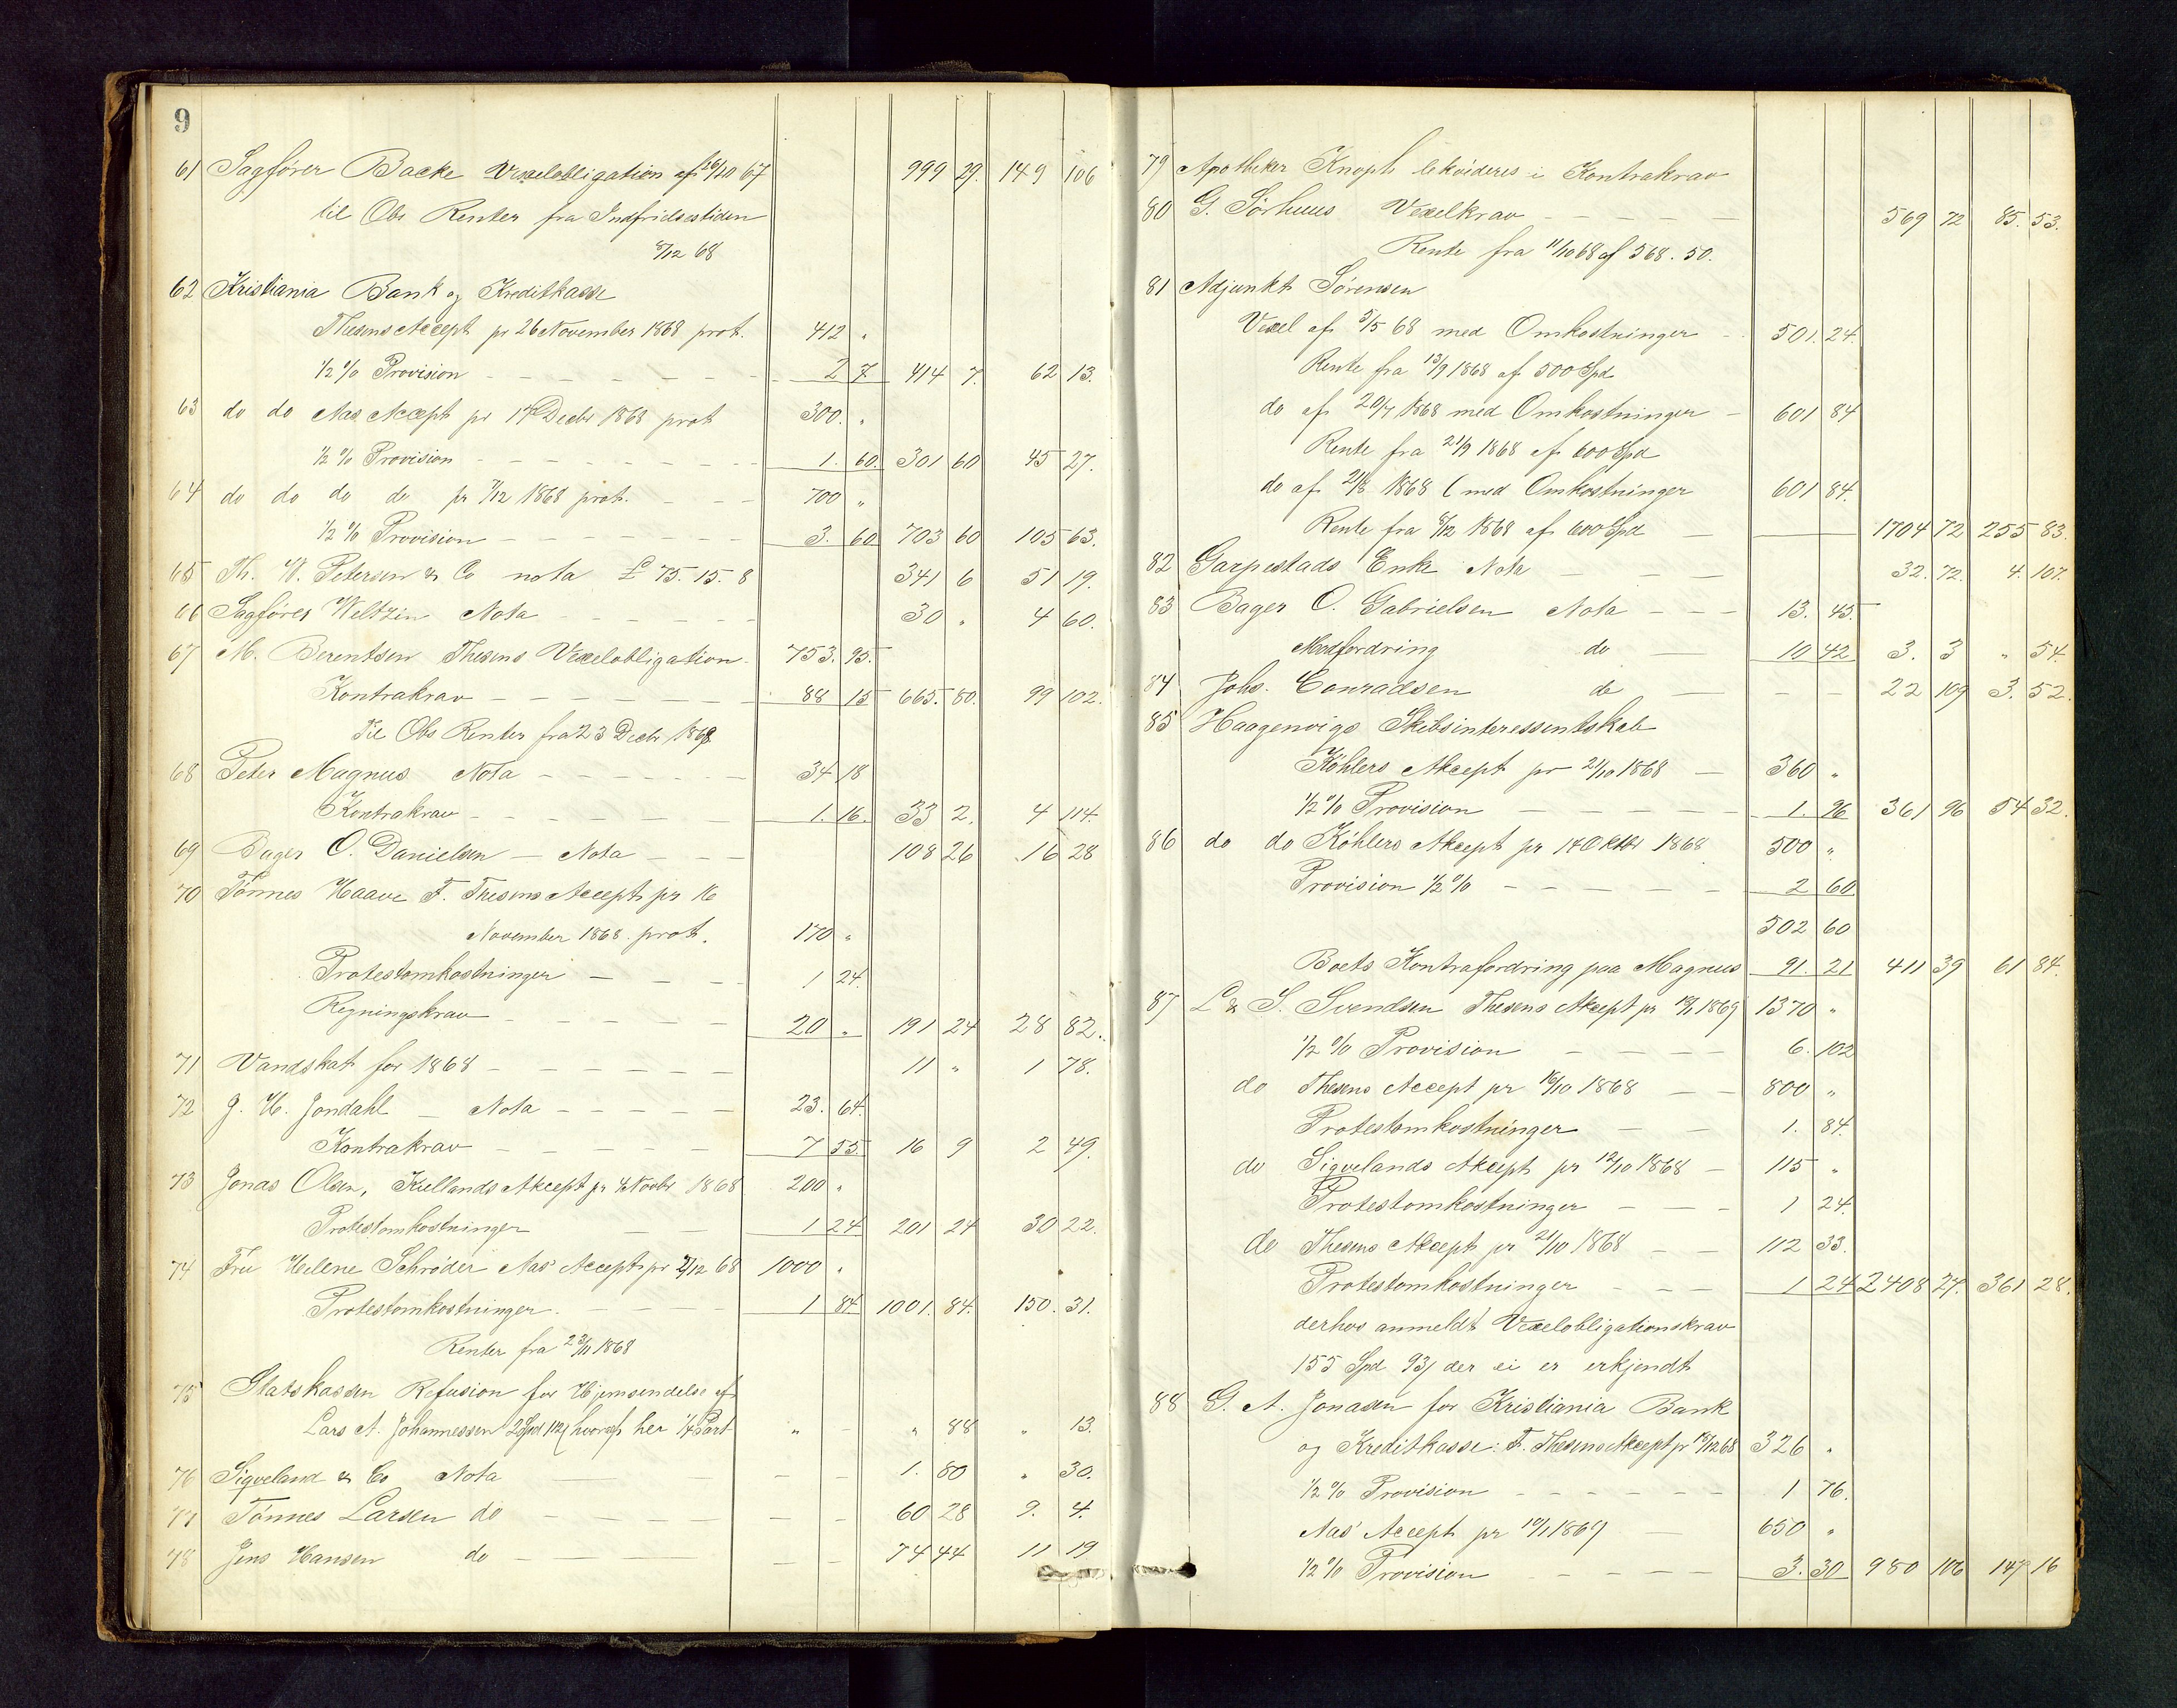 9
61 Sagfører Backe Vexelobligation af 26/10 67 999 29. 149 106
til Obs Renter fra Indfridsestiden
5/12 68
62 Kristiania Bank og Kreditkasse
Thesens Accept pr 26 November 1868 prot. 412 "
1/2 % Provision 2 7. 414 7. 62 13.
63 do do Aas Accept pr 14 Decbr 1868 prot 300. "
1/2 % Provision 1. 60. 301 60 45 27.
64 do do do do pr 7/12 1868 prot. 700 "
1/2 % Provision 3. 60 703 60 105 63.
65 Th. W. Petersen & Co nota £ 75. 15. 8 341 6 51 19.
66 Sagfører Weltzin Nota 30 " 4 60.
67 M. Berentsen Thesens Vexelobligation 753. 95.
Kontrakrav 88 15 665. 80. 99 102.
Til Obs Renter fra 23 Decbr 1868
68 Peter Magnus Nota 34 18
Kontrakrav 1. 16. 33 2. 4 114.
69 Bager O. Danielsen — Nota 108 26 16 28
70 Tønnes Haave F. Thesens Accept pr 16
November 1868 prot. 170 "
Protestomkostninger 1 24.
Regningskrav 20 " 191 24 28 82.
71 Vandskat for 1868 11 " 1 78.
72 J. H. Jondahl — Nota 23. 64.
Kontrakrav 7 55. 16 9 2 49.
73 Jonas Olsen, Kiellands Akcept pr 4 Novbr 1868 200 "
Protestomkostninger 1 24 201 24 30 22.
74 Fru Helene Schrøder Aas' Accept pr 2/12 68 1000 "
Protestomkostninger 1 84. 1001. 84. 150. 31.
Renter fra 23/11 1868
75 Statskassen Refusion for Hjemsendelse af
Lars A. Johannessen 2 Spd 112 hvoraf her 1/4 Part " - " 88 " 13.
76 Sigveland & Co Nota 1. 80 " 30.
77 Tønnes Larsen do 60 28 9. 4.
78 Jens Hansen do 74 44 11 19
79 Apotheker Knoph lekvideres i Kontrakrav
80 G. Sørhuus Vexelkrav 569 72 85. 53.
Rente fra 11/10 68 af 568. 50.
81 Adjunkt Sørensen
Vexel af 5/5 68 med Omkostninger 501. 24.
Rente fra 13/9 1868 af 500 Spd
do af 20/7 1868 med Omkostninger 601 84
Rente fra 21/9 1868 af 600 Spd
do af 21/8 1868 ( med Omkostninger 601 84.
Rente fra 8/12 1868 af 600 Spd 1704 72 255 83.
82 Garpestads Enke Nota 32. 72. 4. 107.
83 Bager O. Gabrielsen Nota 13. 45.
Modfordring do 10 42 3. 3 " 54.
84 Johs. Conradsen do 22 109 3. 52.
85 Haagenvigs Skibsinteressentskab
Køhlers Akcept pr 21/10 1868 360 "
1/2 % Provision 1. 96 361 96 54 32.
86 do do Køhlers Akcept pr 14 Oktbr 1868 500 "
Provision 1/2 % 2 60
502 60
Boets Kontrafordring paa Magnus 91. 21 411 39 61 84.
87 L & S. Svendsen Thesens Akcept pr 1869 1370 "
1/2 % Provision 6. 102
do Thesens Accept pr 16/10 1868 800 "
Protestomkostninger 1. 84.
do Sigvelands Akcept pr 12/10 1868 115 "
Protestomkostninger 1 24.
do Thesens Akcept pr 21/10 1868 112 33.
Protestomkostninger 1 24 2408 27. 361 28.
derhos anmeldt Vexelobligationskrav
155 Spd 93 der ei er erkjendt
88 G. A. Jonasen for Kristiania Bank
og Kreditkasse: F. Thesens Akcept pr 12 68 326 "
1/2 % Provision 1 76.
Aas' Accept pr 1869 650 "
1/2 % Provision 3. 30 980 106 147 16